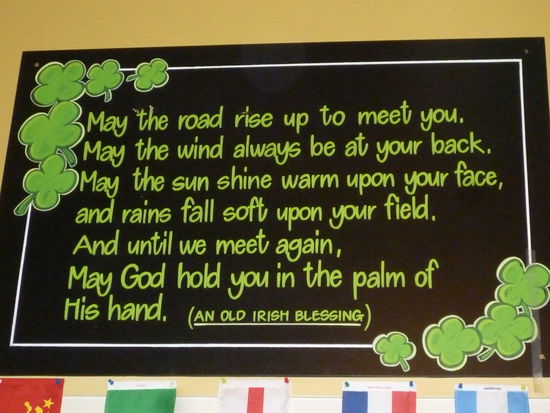 May the road rise up to meet you.
May the wind always be at your back.
May the sun shine warm upon your face,
and rains fall soft upon your field.
And until we meet again,
May God hold you in the palm of
His hand. (AN OLD IRISH BLESSING)